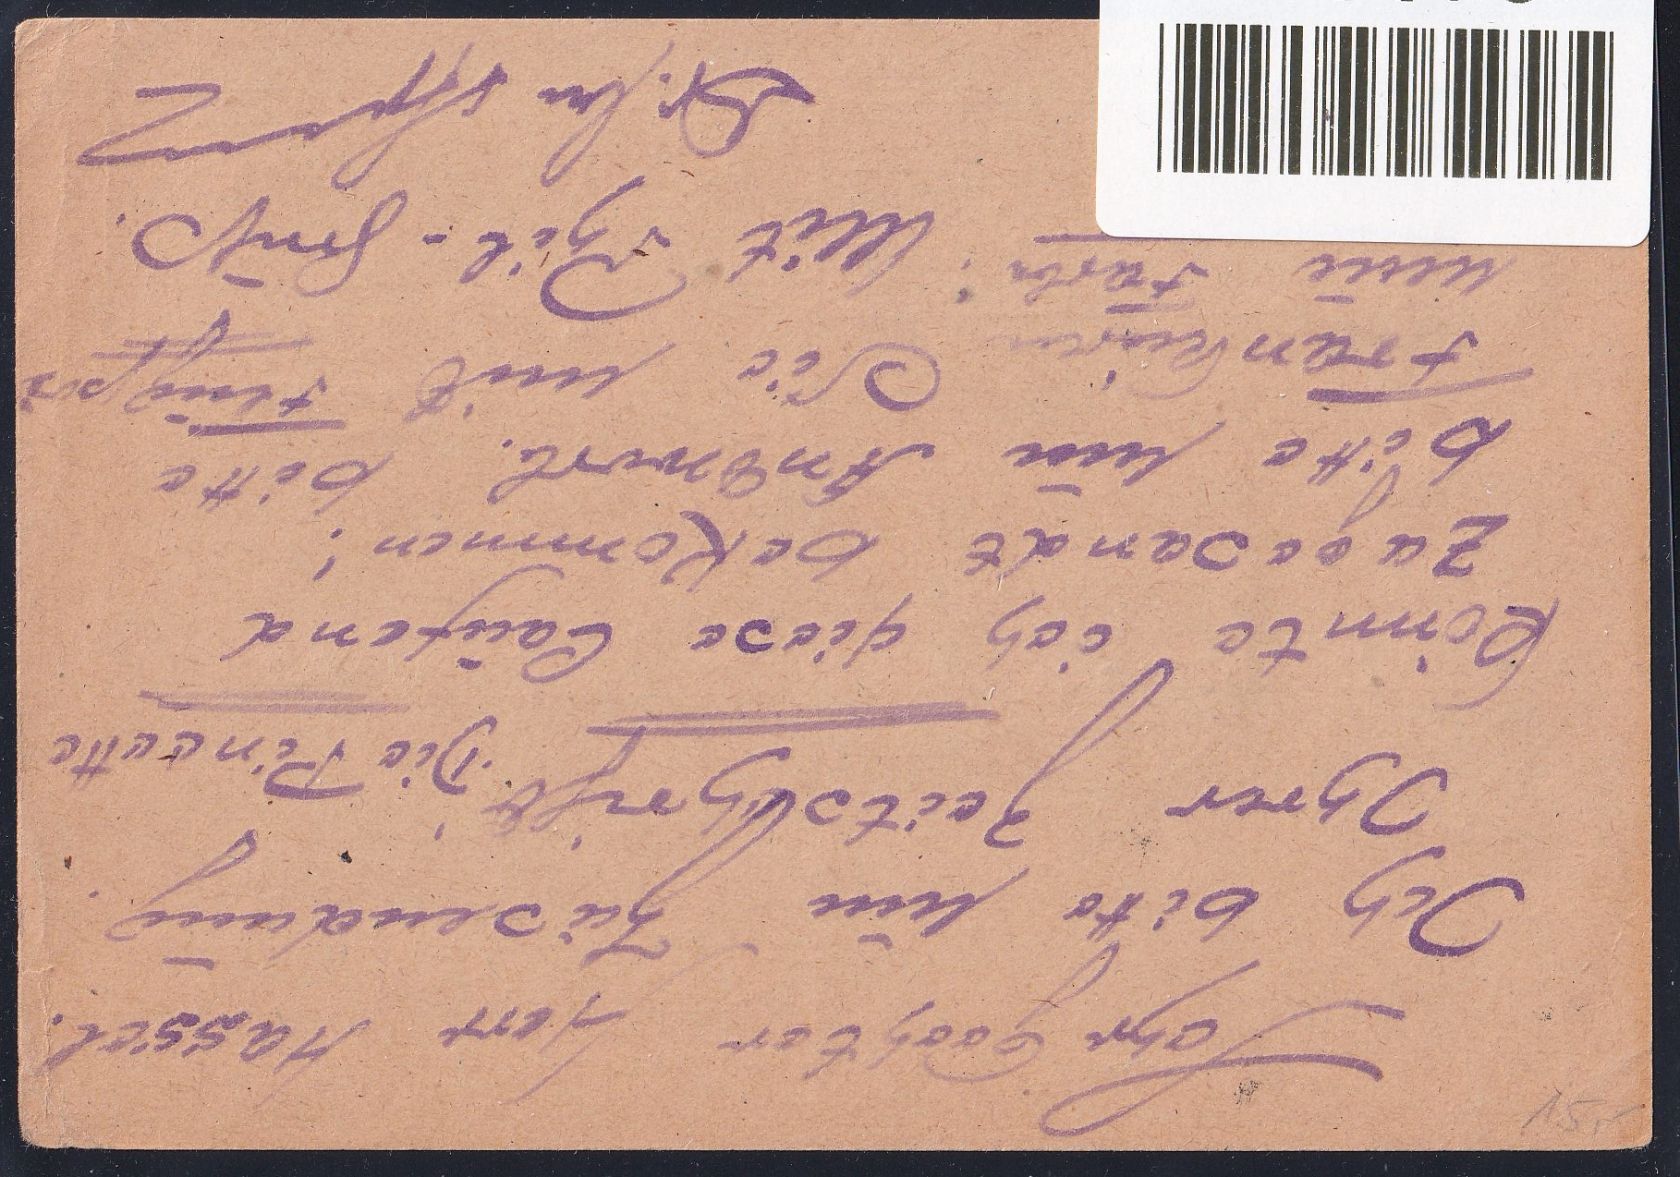 Sehr Geehrter Herr Hassel.
Ich bitte um Zusendung
Ihrer Zeitschrift. Die Pincette
Könnte ich diese laufend
zugesandt bekommen!
bitte um Antwort. bitte
Frankieren Sie mit
mein Farbe. Mit Phil-Gruß.
15,-